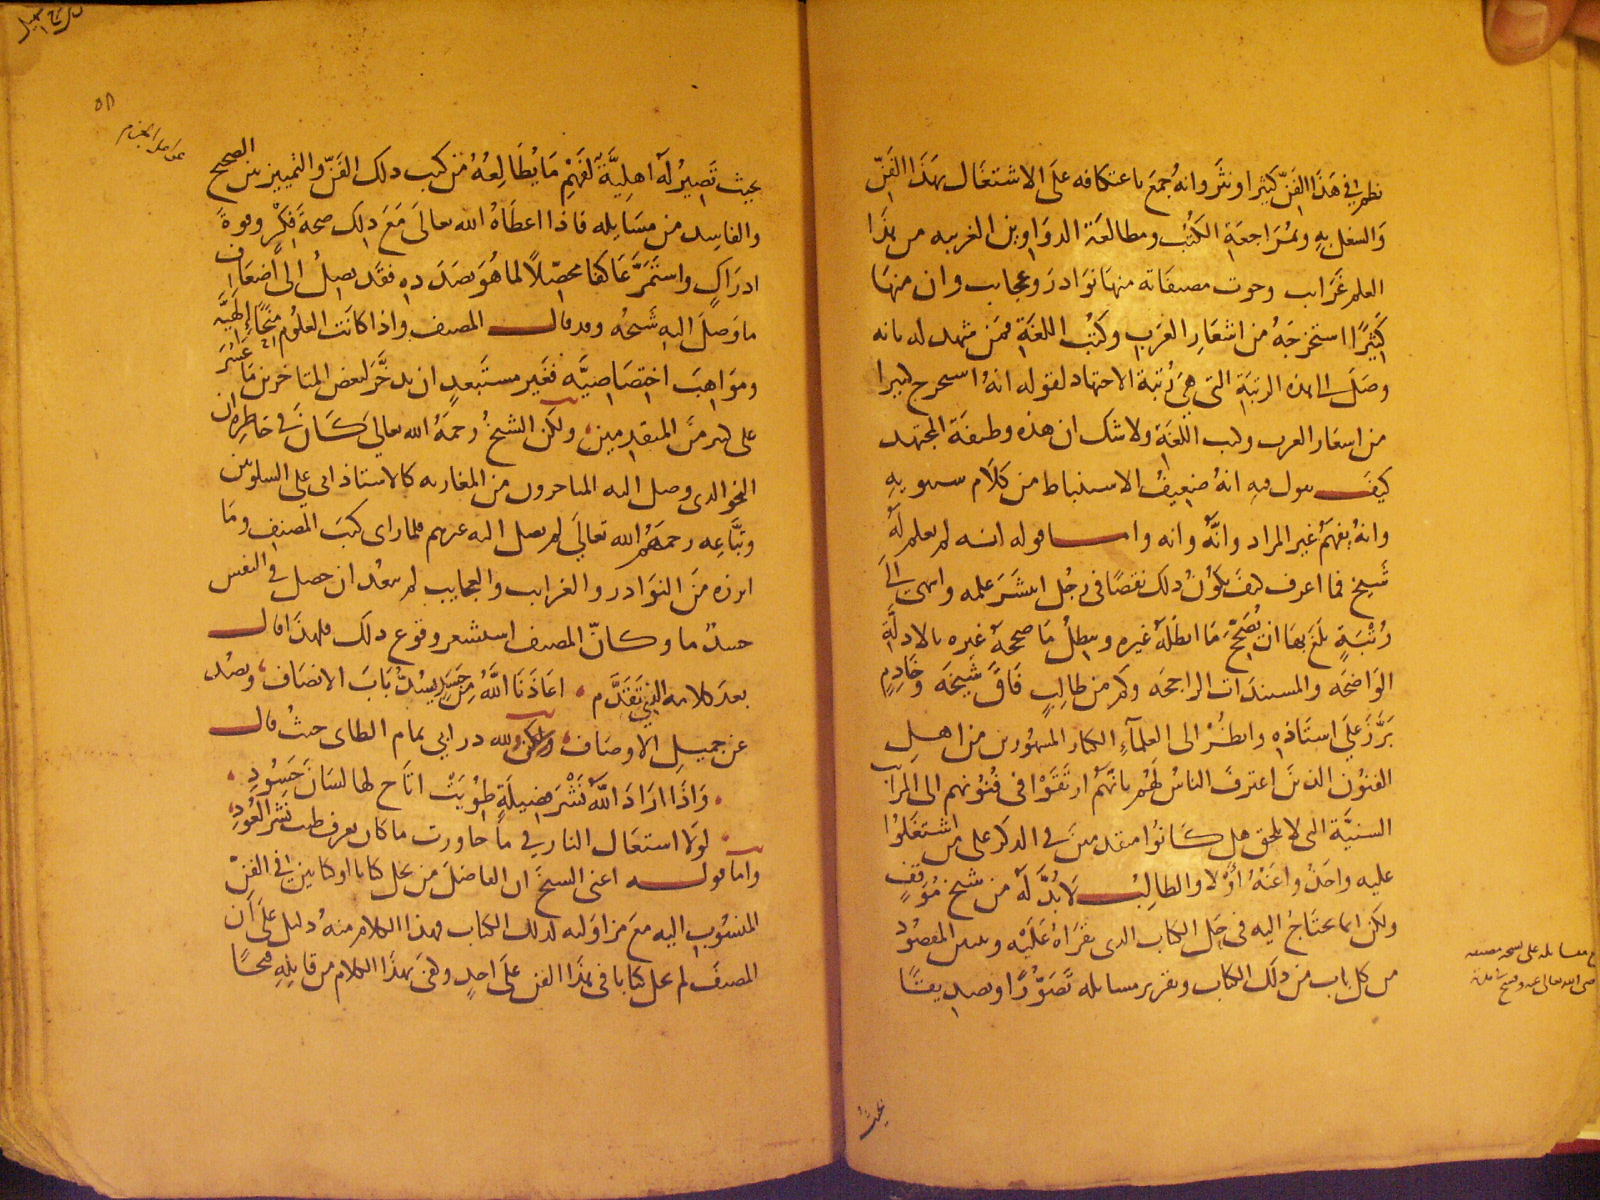 نظم في هذا الفن كثيرا ونثر وانه جمع باعتكافه على الاشتغال بهذا الفن
والشغل به وبمراجعة الكتب ومطالعة الدواوين الغريبه من هذا
العلم غرايب وحوت مصنفاته منها نوادر وعجايب وان منها
كثيرا استخرجه من اشعار العرب وكتب اللغة فمن شهد له بانه
وصل الى هذه الرتبة التي هي رتبة الاجتهاد لقوله انه استخرج كثيرا
من اسعار العرب وكتب اللغة ولا شك ان هذه وظيفة المجتهد
كيف يقول فيه انه ضعيف الاستنباط من كلام سيبويه
وانه يفهم غير المراد وانه وانه واما قوله انه لم يعلم له
شيخ فما اعرف كيف يكون ذلك نقصا في رجل انتشر علمه وانتهى الى
رتبة بلغ بها ان يصحح ما ابطله غيره ويبطل ما صححه غيره بالادلة
الواضحه والمستندات الراجحه وكم من طالب فاق شيخه وخادم
برز على استاذه وانظر الى العلمآء الكبار المشهورين من اهل
الفنون الذين اعترف الناس لهم بانهم ارتقوا في فنونهم الى المراتب
السنية التي لا تلحق هل كانوا متقدمين في الذكر على من اشتغلوا
عليه واخذوا عنه أولا والطالب لا بد له من شيخ موقف
ولكن انما يحتاج اليه في حل الكتاب الذي يقراه عليه وتبيين المقصود
من كل باب من ذلك الكتاب وتقرير مسايله تصورا وتصديقا
بحيث
بحيث تصير له اهلية لفهم ما يطالعه من كتب ذلك الفن والتمييز بين الصحيح
والفاسد من مسايله فاذا اعطاه الله تعالى مع ذلك صحة فكر وقوة
ادراك واستمر عاكفا محصلا لما هو بصدده فقد يصل الى اضعاف
ما وصل اليه شيخه وقد قال المصنف واذا كانت العلوم منحا إلهية
ومواهب اختصاصيه فغير مستبعد ان يدخر لبعض المتاخرين ما عسر
على كثير من المتقدمين ولكن الشيخ رحمه الله تعالى كان في خاطره ان
النحو الذي وصل اليه المتاخرون من المغاربه كالاستاذ ابي علي الشلوبين
وتباعه رحمهم الله تعالى لم يصل اليه غيرهم فلما راى كتب المصنف وما
ابرزه من النوادر والغرايب والعجايب لم يبعد ان حصل في النفس
حسد ما وكان المصنف استشعر وقوع ذلك فلهذا قال
بعد كلامه الذي تقدم اعاذنا الله من حسد يسد باب الانصاف ويصد
عن جميل الاوصاف ولكن لله در ابي تمام الطاى حيث قال
واذا اراد الله نشر فضيلة طويت اتاح لها لسان حسود
لولا استعال النار في ما جاورت ما كان يعرف طيب نشر العود
واما قوله اعنى الشيخ ان الفاضل من يحل كتابا او كتابين في الفن
المنسوب اليه مع مزاوليه لذلك الكتاب فهذا الكلام منه دليل على أن
المصنف لم يحل كتابا في هذا الفن على احد وكفى بهذا الكلام من قايله قبحا